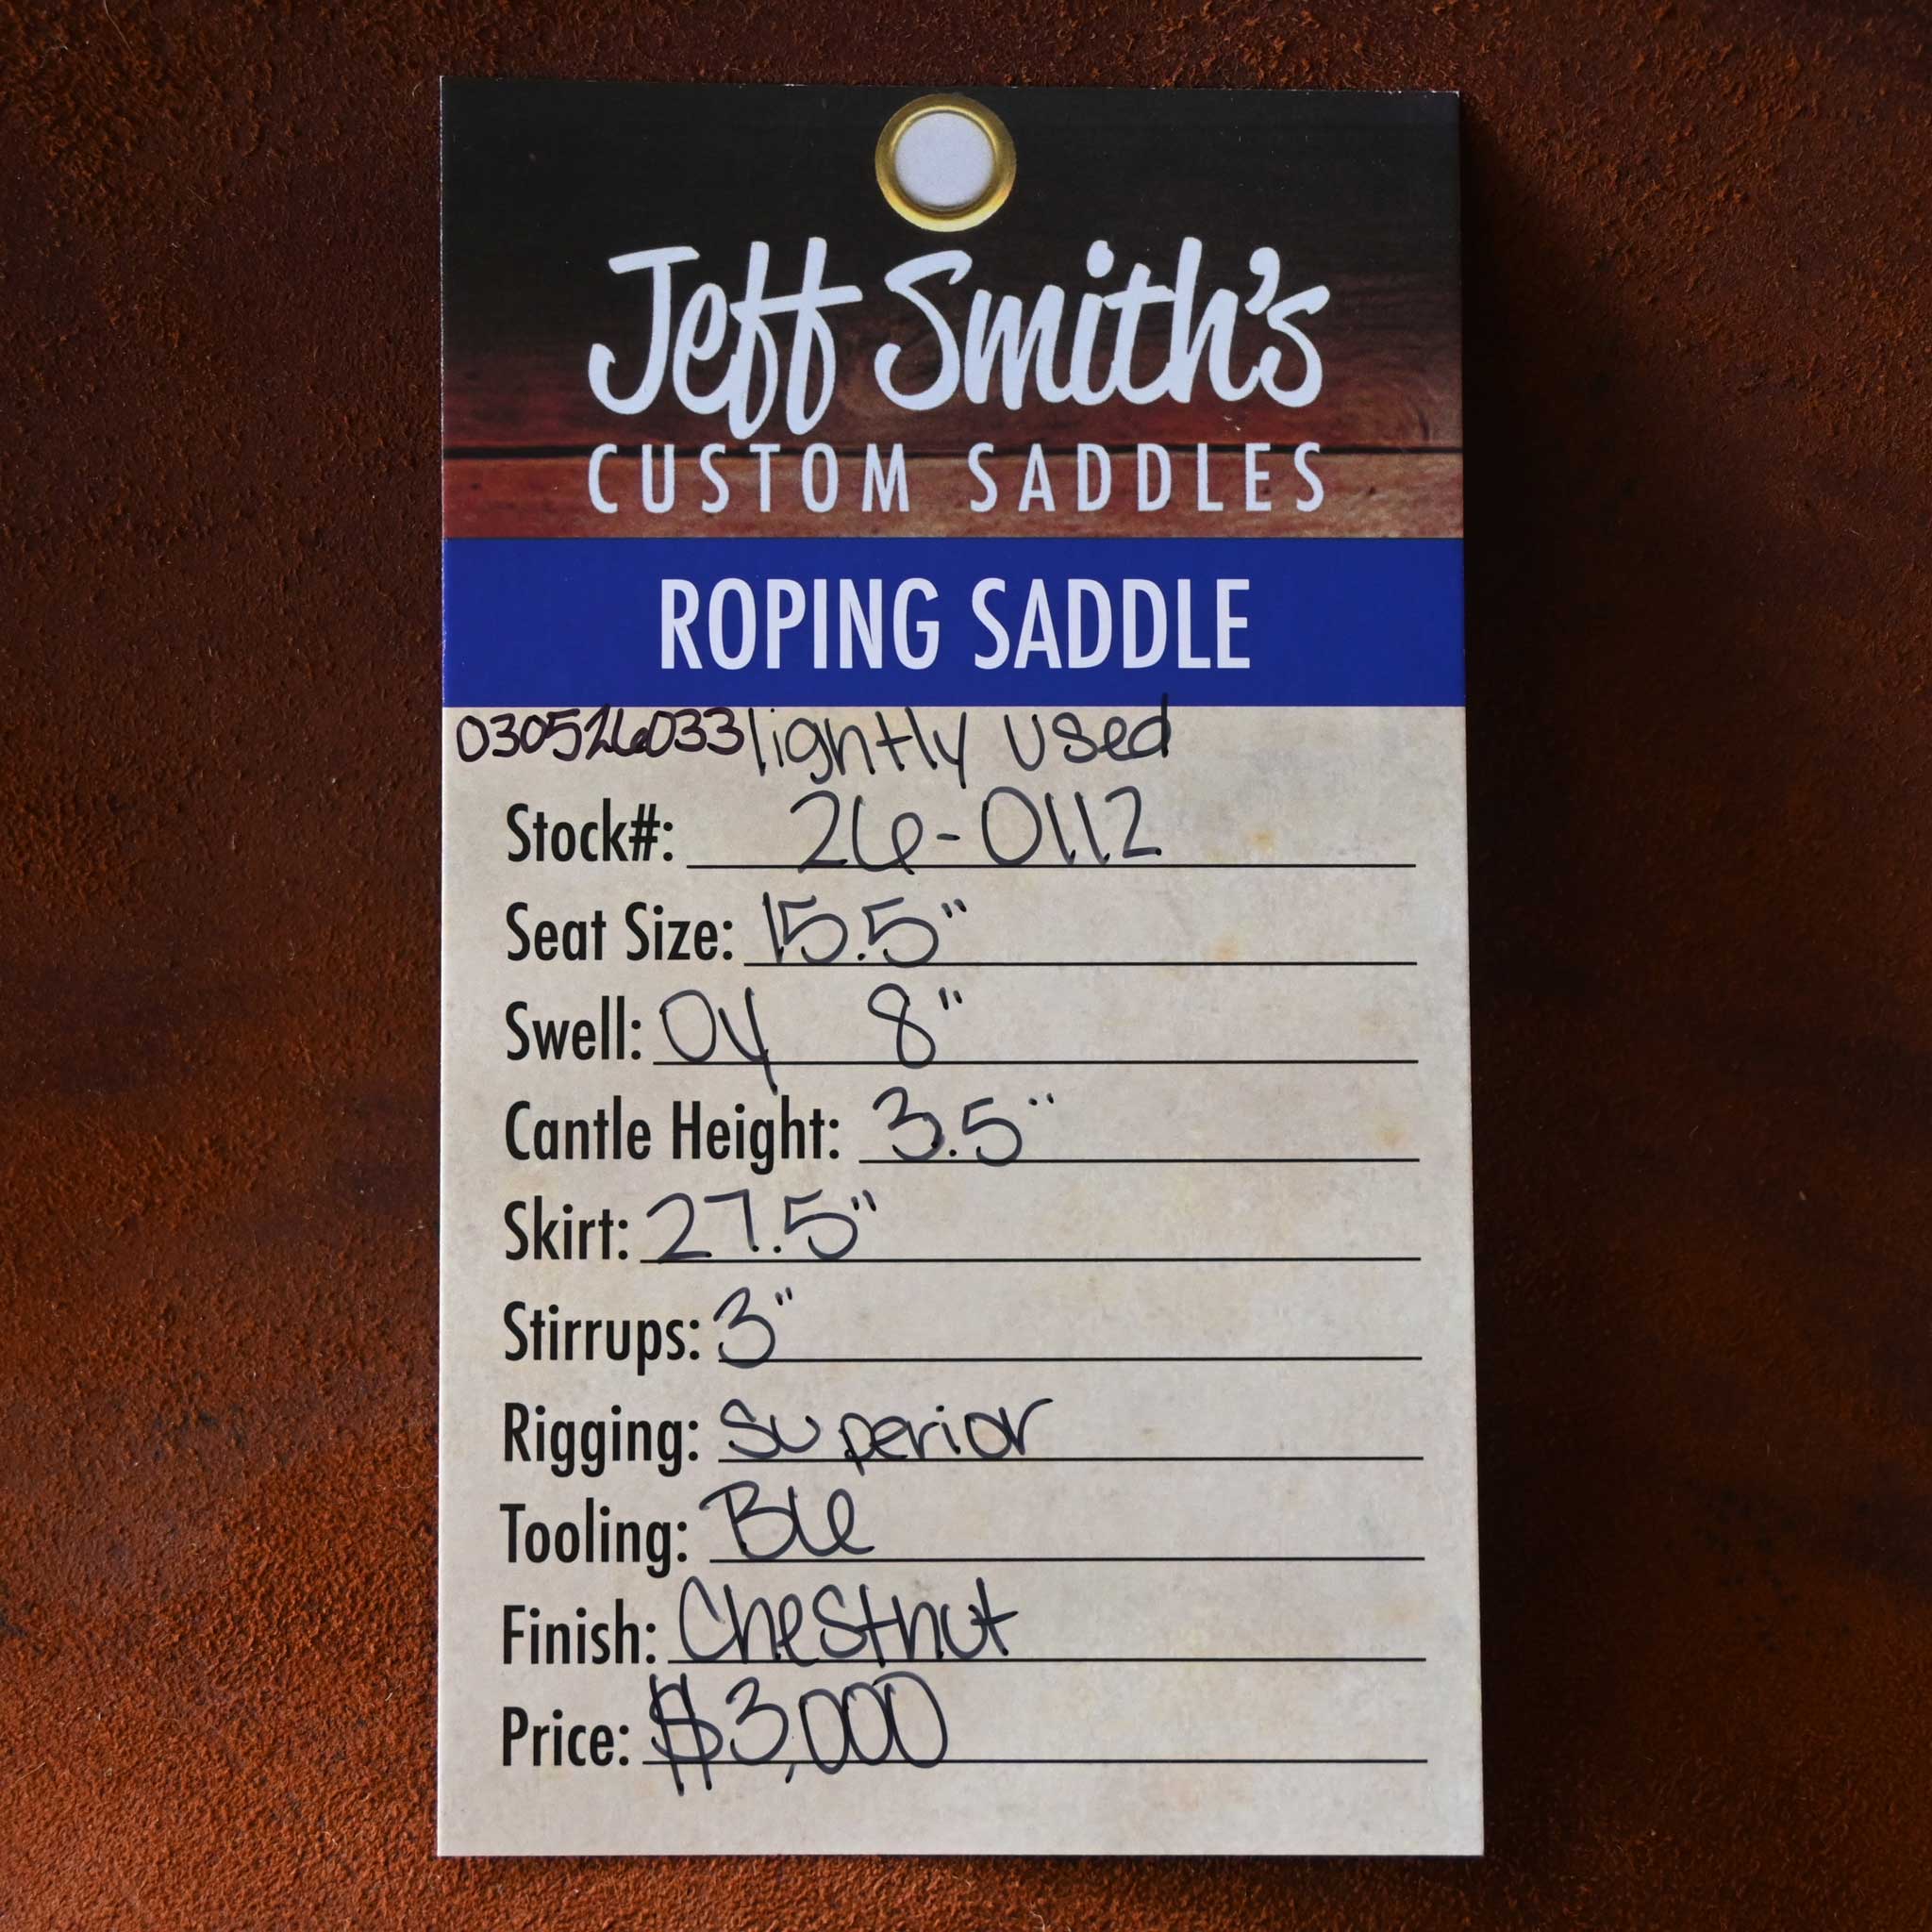 Jeff Smith's
CUSTOM SADDLES
ROPING SADDLE
030526033 lightly used
Stock#: 26-0112
Seat Size: 15.5"
Swell: Oy 8"
Cantle Height: 3.5"
Skirt: 27.5"
Stirrups: 3"
Rigging: Superior
Tooling:
Finish: Chestnut
Price: $3,000